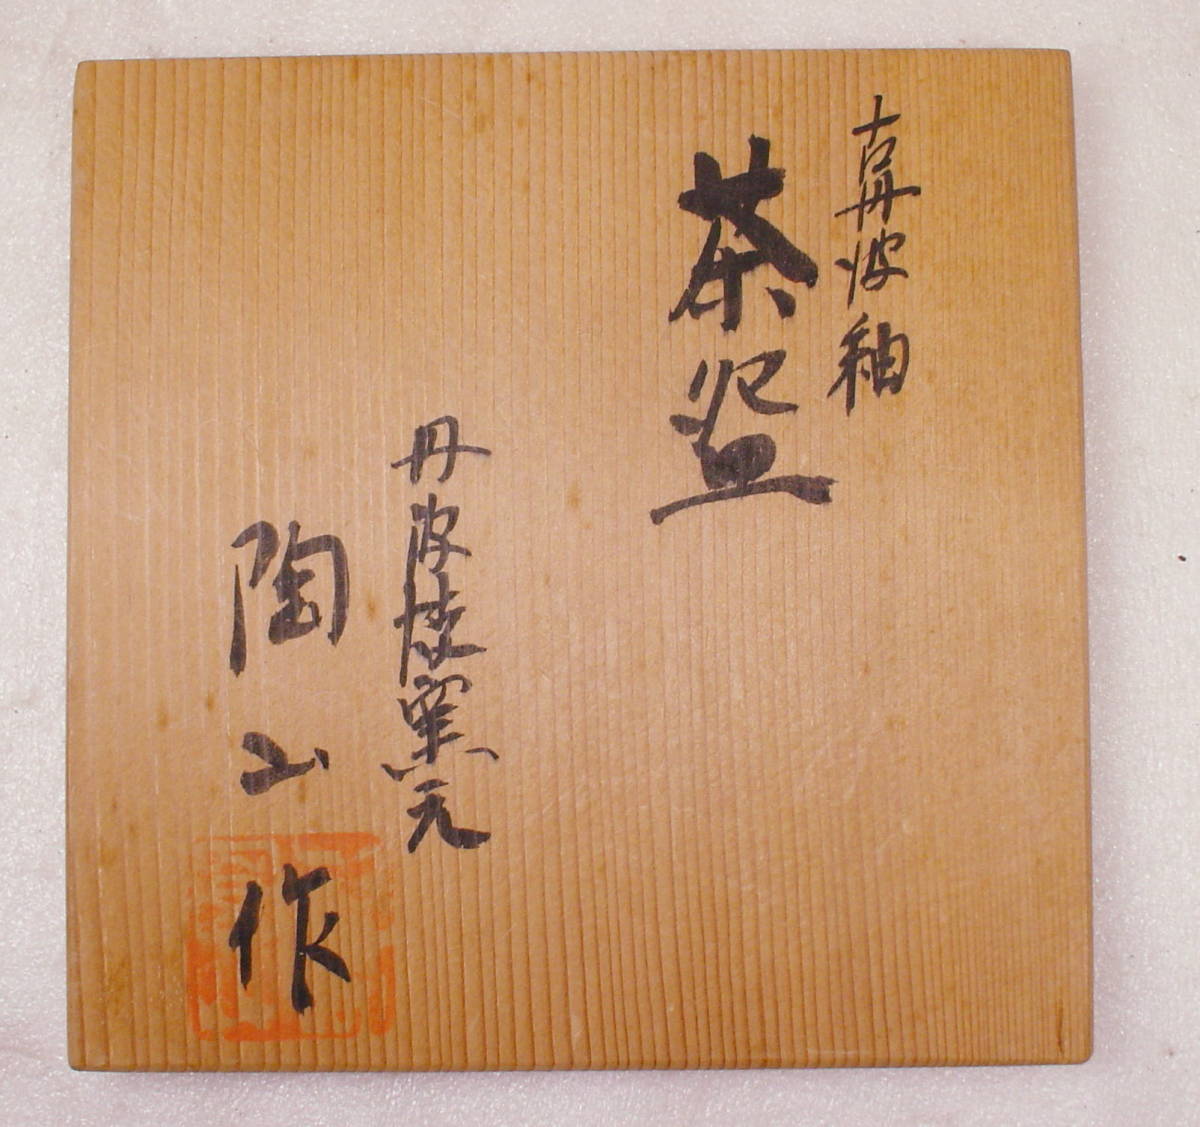 古丹波釉
茶盌
丹波焼窯元
陶山作